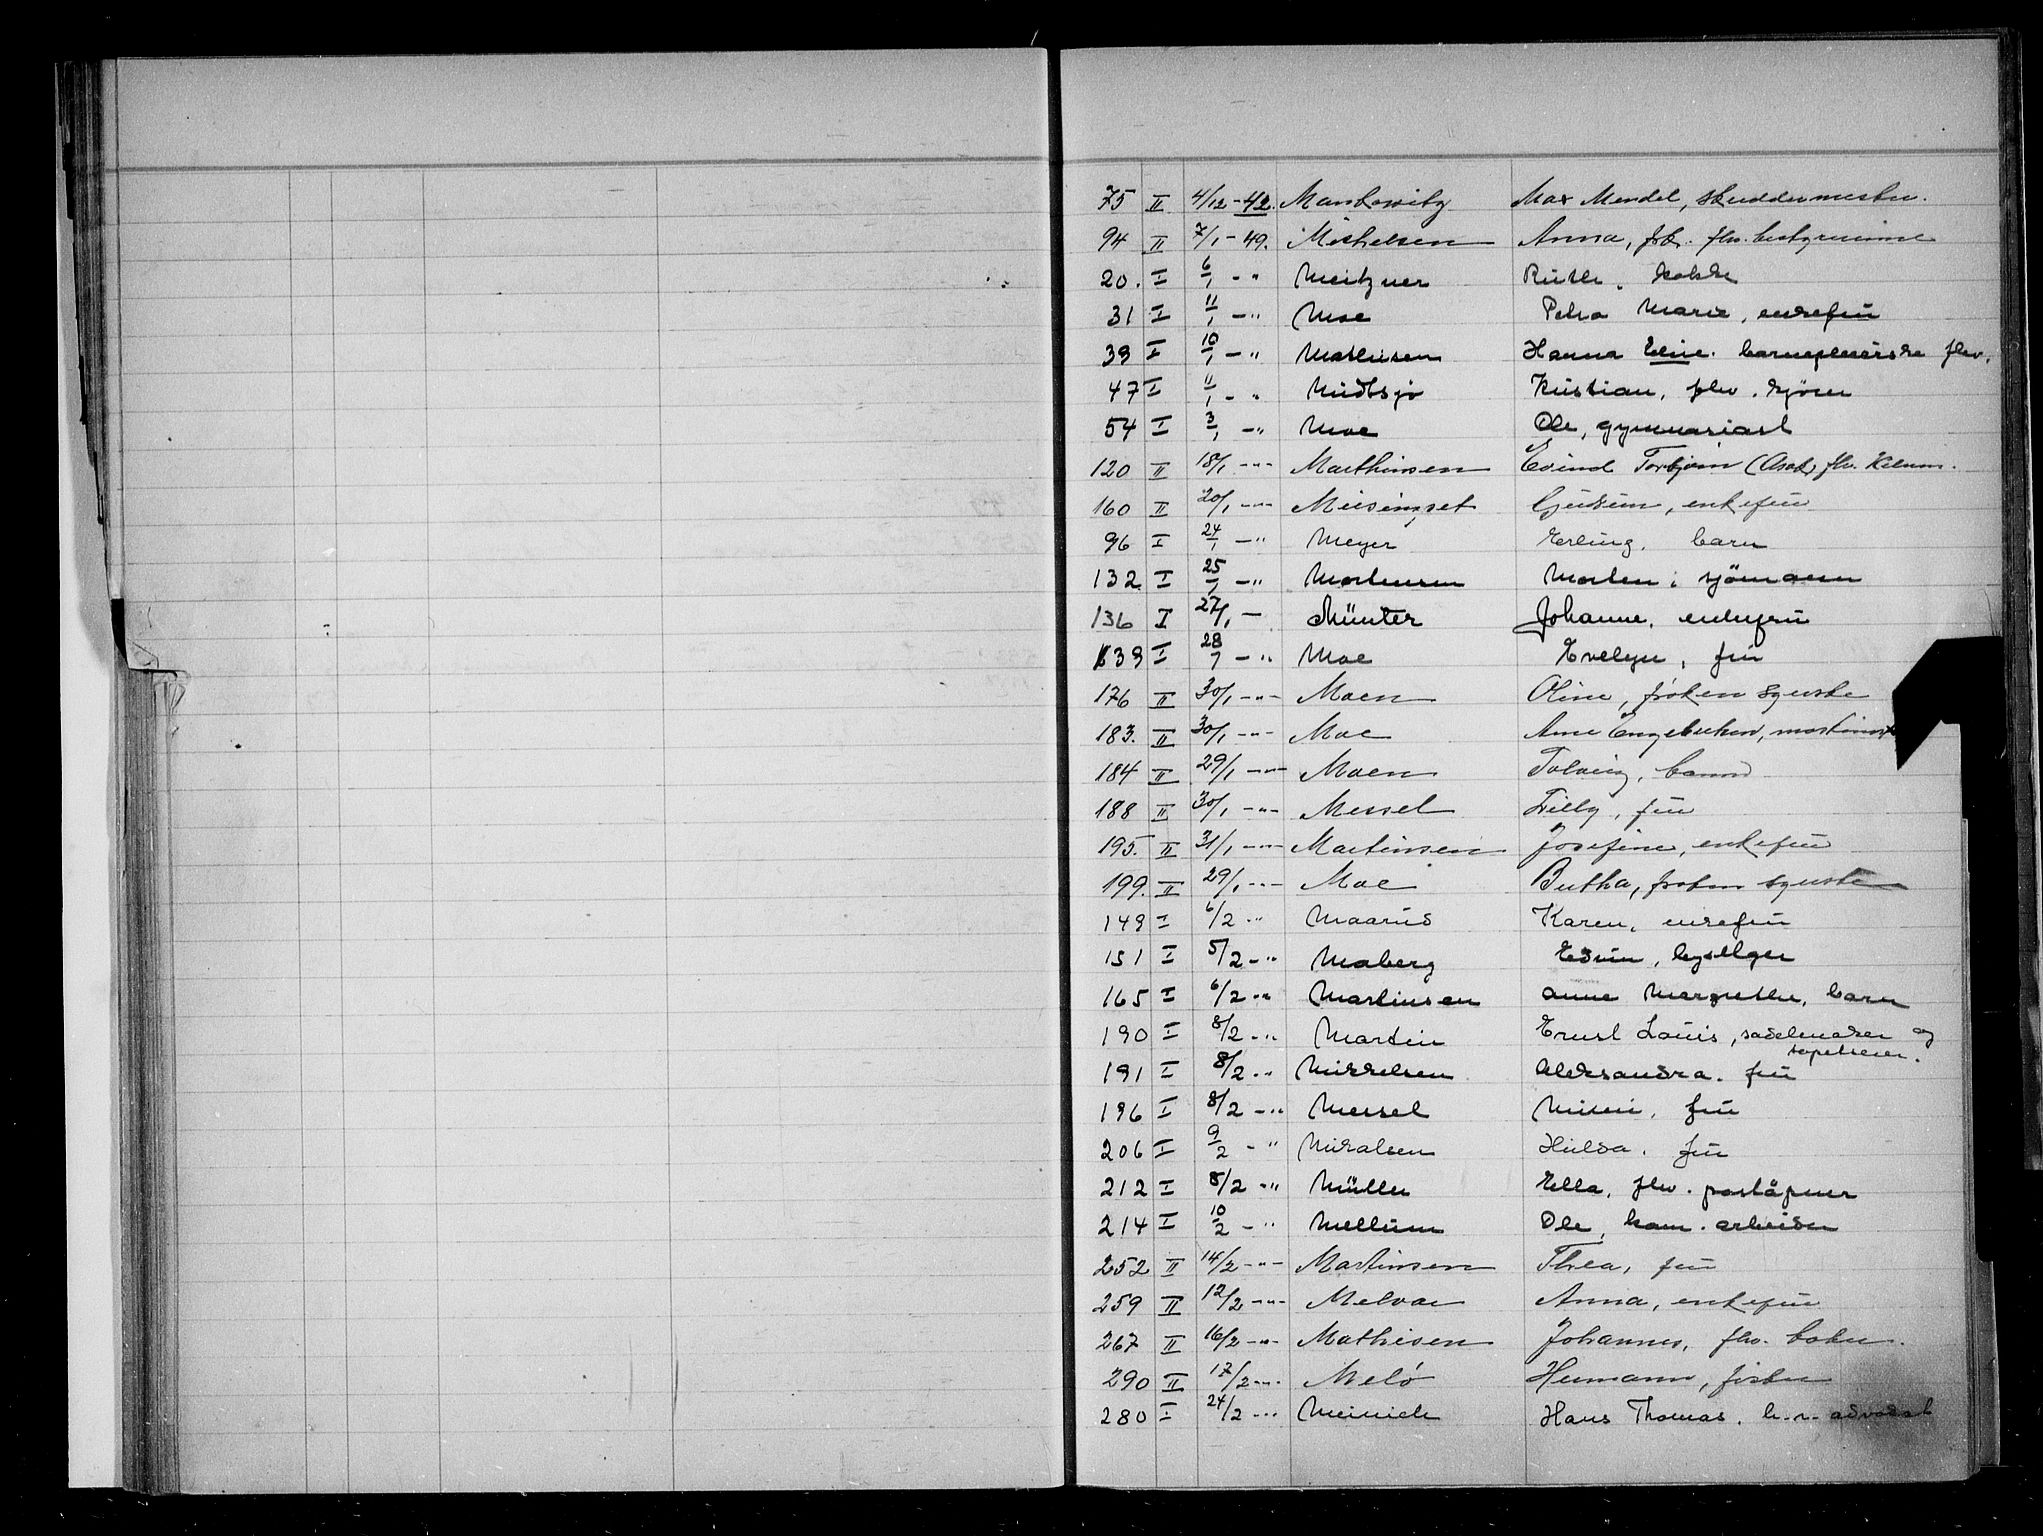 75 II 4/12 - 42. Mankowitz Max Mendel, skreddermester.
94 II 7/1 - 49. Michelsen Anna, frk. fhv. bestyrerinne
20. I 6/1 - " Meitzner Ruth, kokke
31 I 11/1 - " Moe Petra Marie, enkefru
39 I 10/1 - " Mathisen Hanna Eline. barnepleierske fhv.
47 I 11/1 - " Midtsjø Kristian, fhv. kjører
54 I 3/1 - " Moe Ole, gymnasiast
120 II 18/1 - " - Marthinsen Eivind Torbjørn
160 II 20/1 - " - Gudrun, enkefru
96 I 24/1 - " Meyer Erling, barn
132 I 25/1 - " Mortensen Morten, sjømann
136 I 27/1 - Münter Johanne, enkefru
139 I 28/1 - " Moe Evelyn, fru
176 II 30/1 - " - Moen Oline, frøken syerske
183. II 30/1 - " - Moe Arne Engebretsen, maskinist
184 II 29/1 - " - Moen Solveig, barn
188 II 30/1 - " - Messel Lilly, fru
195. II 31/1 - " - Martinsen Josefine, enkefru
199. II 29/1 - " - Moe Bertha, frøken syerske
149 I 6/2 " Maarud Karen, enkefru
151 I 5/2 - " Moberg Edvin, byselger
165 I 6/2 - " Martinsen Anne Margrethe, barn
190 I 8/2 - " Martin Ernst Louis, sadelmaker og
tapetserer.
191 I 8/2 - " Mikkelsen Aleksandra. fru
196 I 8/2 - " Messel Mimi, fru
206 I 9/2 - " Mikalsen Hilda. fru
212 I 8/2 - " Müller Ella, fhv. poståpner
214 I 10/2 - " Mellum Ole, kom. arbeider
252 II 14/2 - " - Martinsen Thea, fru
259 II 12/2 - " - Melvær Anna, enkefru
267 II 16/2 - " - Mathisen Johannes, fhv. baker.
290 II 17/2 - " - Melø Hermann, fisker
280 I 24/2 - " Meinich Hans Thomas. h.r. advokat